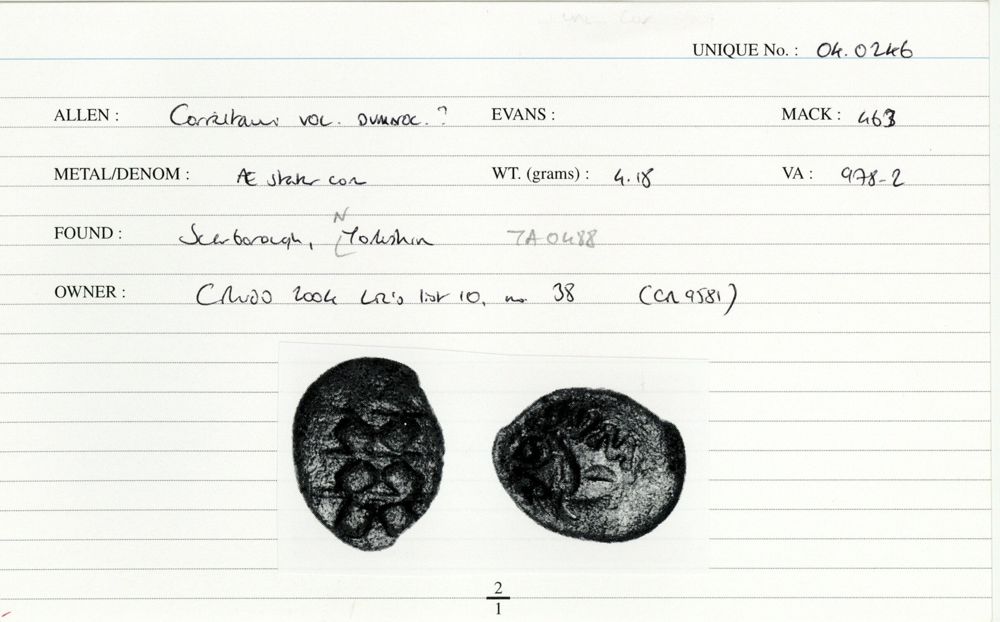 UNIQUE No. : 04.0246
ALLEN : Corieltauvi VOC. DUMNOC. ? EVANS : MACK : 463
METAL/DENOM : Æ stater core WT. (grams) : 4.18 VA : 978-2
FOUND : Scarborough, N Yorkshire TA0488
OWNER : 2004 list 10, no. 38 (CR 9581)
2
1